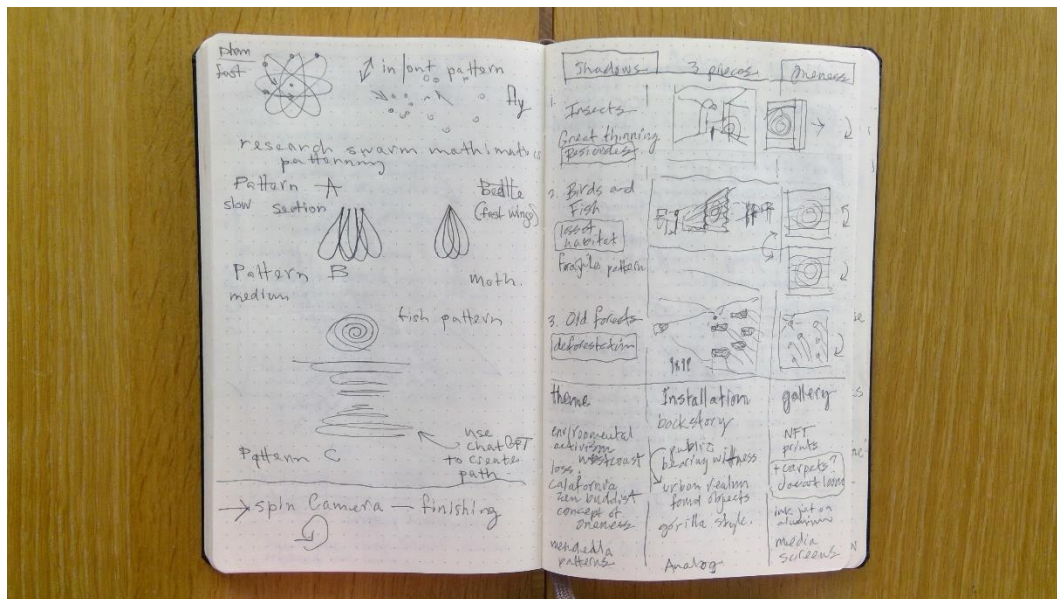 fast
in/out pattern
fly
research swarm mathematics
patterning
Pattern A
slow section
Beatle
(fast wings)
Pattern B
medium
moth.
fish pattern
use
chatGPT
to create
path
Pattern C
→ spin Camera — finishing
Shadows
3 pieces
Oneness
1. Insects
Great thinning
Pesicides
2. Birds and
Fish
loss of
habitat
fragile pattern
3. Old forests
deforestation
theme
environmental
activism
westcoast
loss,
california
zen buddist
concept of
oneness
mendella
patterns
Installation
backstory
public
bearing witness
urban realm
found objects
gorilla style.
Analog
gallery
NFT
prints
+ carpets?
doesnot loom
ink jet on
aluminum
media
screens